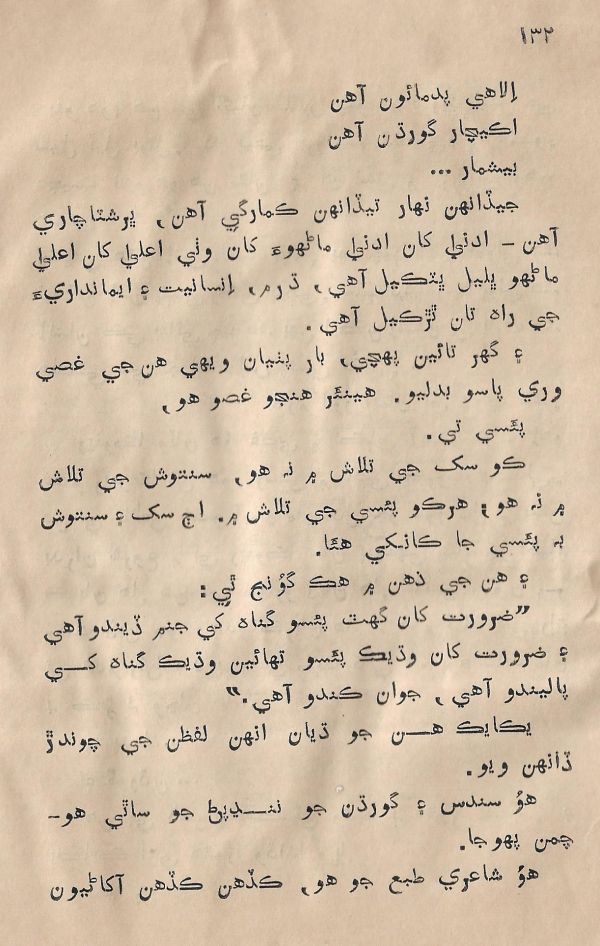 ۱۳۲
اِلاهي پدمائون آهن
اڪيچار گورڌن آهن
بيشمار ...
جيڏانهن نهار تيڏانهن ڪمارگي آهن، ڀرشٽاچاري
آهن – ادنيٰ کان ادنيٰ ماڻهوءَ کان وٺي اعليٰ کان اعليٰ
ماڻهو ڀليل ڀٽڪيل آهي، ڌرم، اِنسانيت ۽ ايمانداريءَ
جي راهه تان ٿڙڪيل آهي.
۽ گهر تائين پهچي، بار پنيان ويهي هن جي غصي
وري پاسو بدليو. هينئر هنجو غصو هو،
پئسي تي.
ڪو سک جي تلاش ۾ نہ هو، سنتوش جي تلاش
۾ نہ هو، هرڪو پئسي جي تلاش ۾. اڄ سک ۽ سنتوش
بہ پئسي جا کانڪي هئا.
۽ هن جي ذهن ۾ هڪ گوُنج ٿي:
”ضرورت کان گهٽ پئسو گناه کي جنم ڏيندو آهي
۽ ضرورت کان وڌيڪ پئسو تهائين وڌيڪ گناه کي
پاليندو آهي، جوان ڪندو آهي.“
يڪايڪ هن جو ڌيان انهن لفظن جي چوندڙ
ڏانهن ويو.
هوُ سندس ۽ گورڌن جو ننڍپڻ جو ساٿي هو–
چمن پهوجا.
هوُ شاعري طبع جو هو، ڪڏهن ڪڏهن آکاڻيون